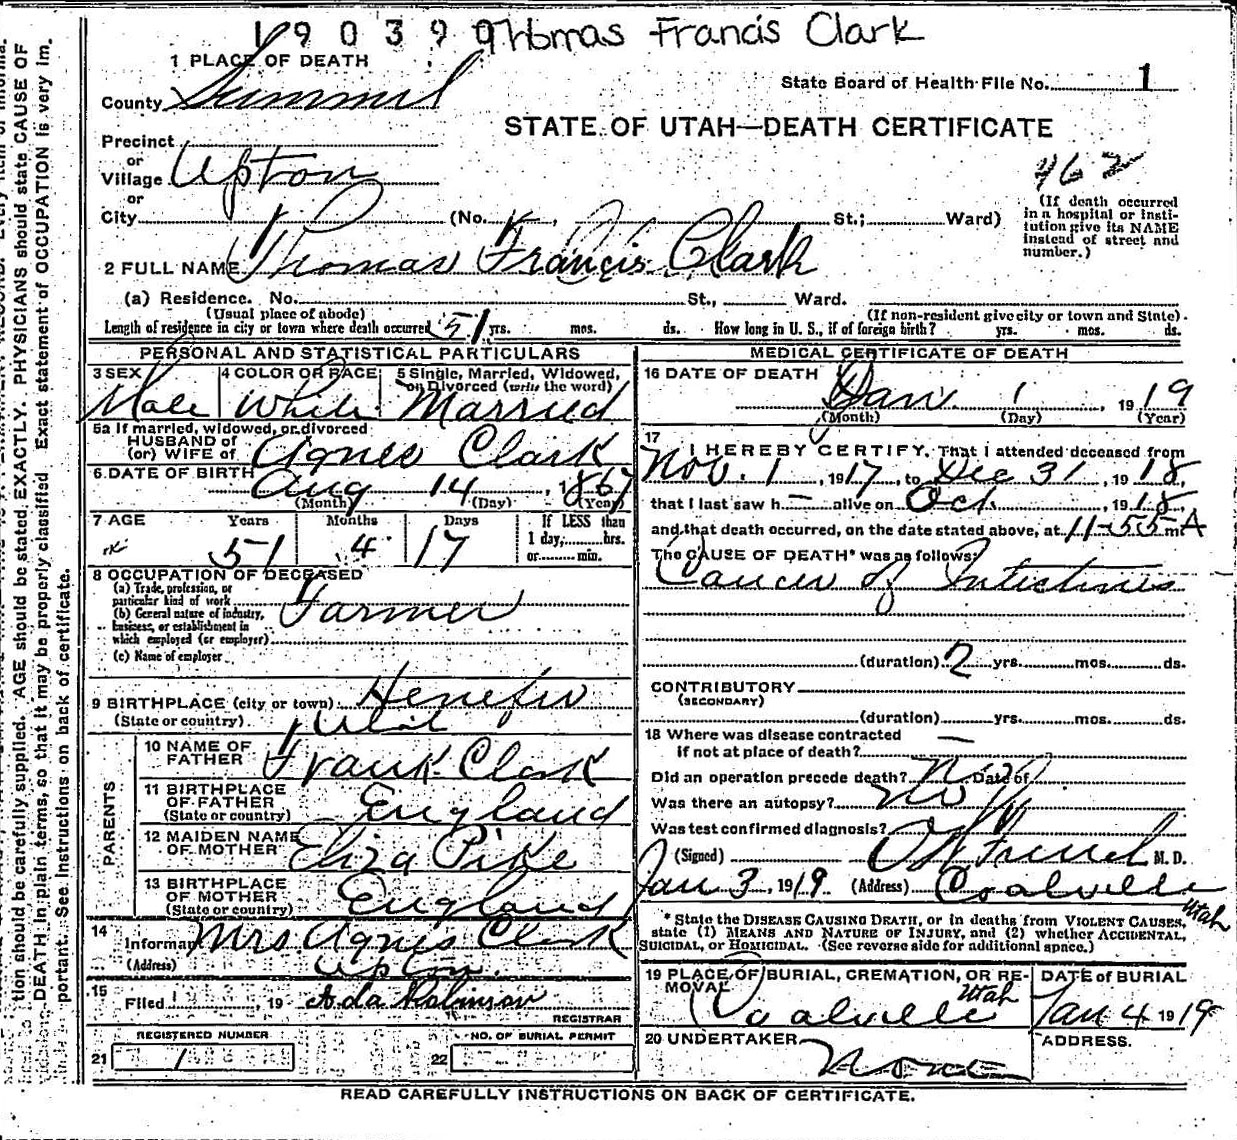 190399 Thomas Francis Clark
1 PLACE OF DEATH
State Board of Health File No. 1
County Summit
STATE OF UTAH—DEATH CERTIFICATE
Precinct
or
Village Upton
462
or
City (No. St.; Ward)
(If death occurred
in a hospital or insti-
tution give its NAME
instead of street and
number.)
2 FULL NAME Thomas Francis Clark
(a) Residence. No. St., Ward.
(Usual place of abode) (If non-resident give city or town and State)
Length of residence in city or town where death occurred 51 yrs. mos. ds. How long in U. S., if of foreign birth? yrs. mos. ds.
PERSONAL AND STATISTICAL PARTICULARS
3 SEX 4 COLOR OR RACE 5 Single, Married, Widowed,
or Divorced (write the word)
Male White Married
5a If married, widowed, or divorced
HUSBAND of
(or) WIFE of Agnes Clark
6 DATE OF BIRTH Aug 14, 1867
(Month) (Day) (Year)
7 AGE Years Months Days If LESS than
1 day, hrs.
or min.
51 4 17
8 OCCUPATION OF DECEASED
(a) Trade, profession, or
particular kind of work Farmer
(b) General nature of industry,
business, or establishment in
which employed (or employer)
(c) Name of employer
9 BIRTHPLACE (city or town) Henefer
(State or country) Utah
PARENTS
10 NAME OF
FATHER Frank Clark
11 BIRTHPLACE
OF FATHER
(State or country) England
12 MAIDEN NAME
OF MOTHER Eliza Pike
13 BIRTHPLACE
OF MOTHER
(State or country) England
14
Informant Mrs Agnes Clark
(Address) Upton
15
Filed 1, 19 Ada Robinson
REGISTRAR
REGISTERED NUMBER NO. OF BURIAL PERMIT
21 1 22
MEDICAL CERTIFICATE OF DEATH
16 DATE OF DEATH
Jan. 1, 1919
(Month) (Day) (Year)
17
I HEREBY CERTIFY, That I attended deceased from
Nov. 1, 1917, to Dec 31, 1918,
that I last saw h— alive on Oct, 1918,
and that death occurred, on the date stated above, at 11-55 m A
The CAUSE OF DEATH* was as follows:
Cancer of Intestines
(duration) 2 yrs. mos. ds.
CONTRIBUTORY
(SECONDARY)
(duration) yrs. mos. ds.
18 Where was disease contracted
if not at place of death? —
Did an operation precede death? No Date of
Was there an autopsy? No
Was test confirmed diagnosis?
(Signed) French M. D.
Jan 3, 1919 (Address) Coalville
Utah
* State the DISEASE CAUSING DEATH, or in deaths from VIOLENT CAUSES,
state (1) MEANS AND NATURE OF INJURY, and (2) whether ACCIDENTAL,
SUICIDAL, or HOMICIDAL. (See reverse side for additional space.)
19 PLACE OF BURIAL, CREMATION, OR RE-
MOVAL DATE of BURIAL
Coalville Utah Jan 4 1919
20 UNDERTAKER ADDRESS.
None
READ CAREFULLY INSTRUCTIONS ON BACK OF CERTIFICATE.
tion should be carefully supplied. AGE should be stated EXACTLY. PHYSICIANS should state CAUSE OF
DEATH in plain terms, so that it may be properly classified. Exact statement of OCCUPATION is very im-
portant. See instructions on back of certificate.